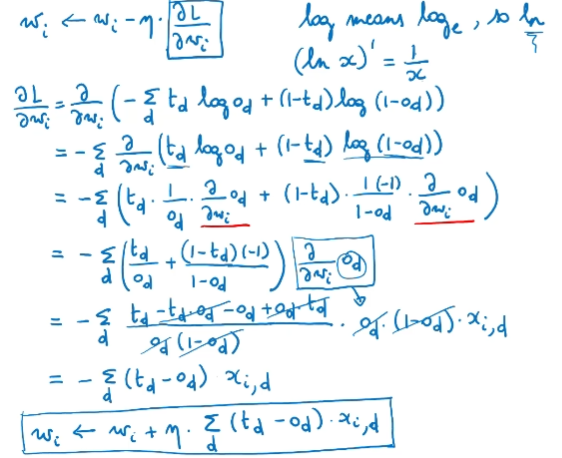 wᵢ ← wᵢ - η · ∂L/∂wᵢ
log means logₑ, so ln
(ln x)' = 1/x
∂L/∂wᵢ = ∂/∂wᵢ (- Σ_d t_d log o_d + (1-t_d) log (1-o_d))
= - Σ_d ∂/∂wᵢ (t_d log o_d + (1-t_d) log (1-o_d))
= - Σ_d (t_d · 1/o_d · ∂/∂wᵢ o_d + (1-t_d) · 1(-1)/(1-o_d) · ∂/∂wᵢ o_d)
= - Σ_d (t_d/o_d + (1-t_d)(-1)/(1-o_d)) ∂/∂wᵢ o_d
= - Σ_d (t_d - t_d·o_d - o_d + o_d·t_d)/(o_d(1-o_d)) · o_d · (1-o_d) · x_{i,d}
= - Σ_d (t_d - o_d) x_{i,d}
wᵢ ← wᵢ + η · Σ_d (t_d - o_d) · x_{i,d}